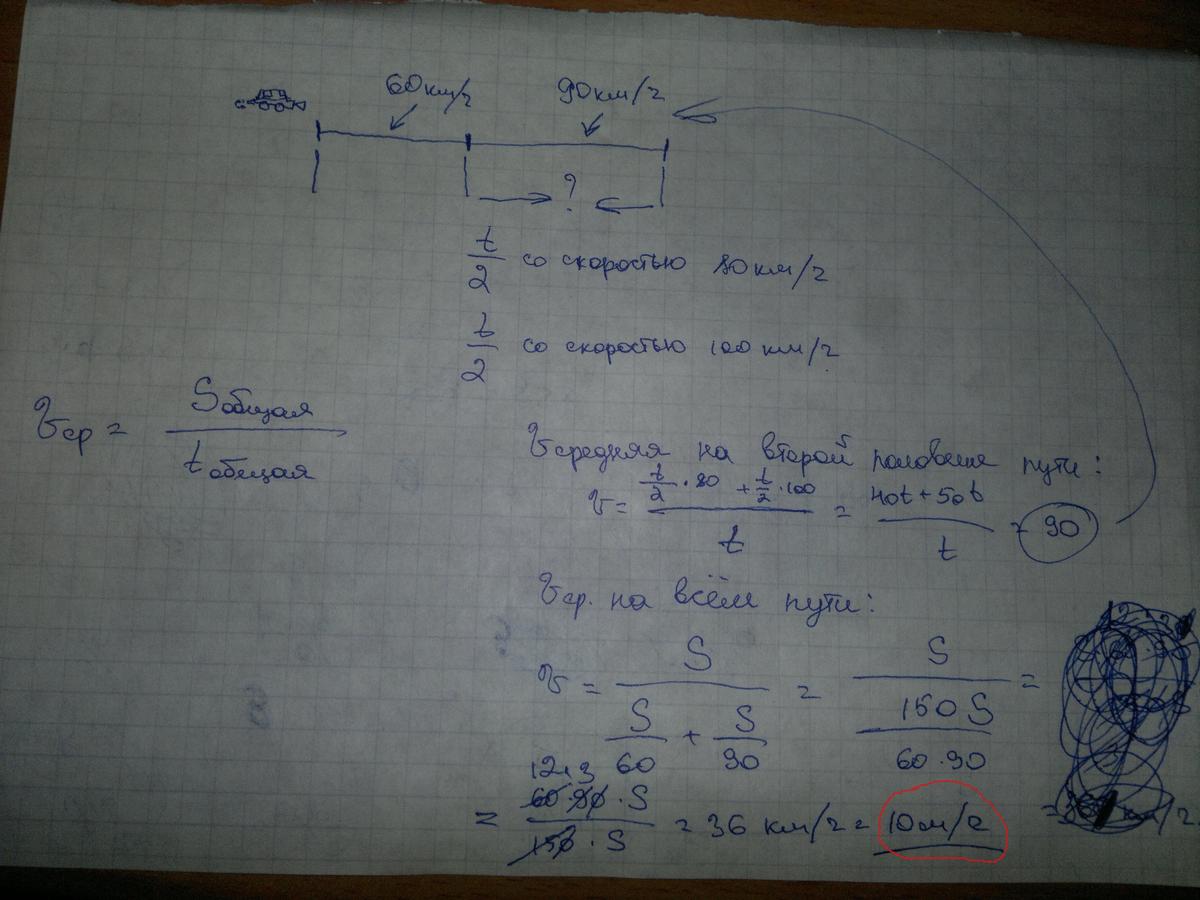 60км/ч 90км/ч
?
t/2 со скоростью 80км/ч
t/2 со скоростью 100км/ч
υср = Sобщая / tобщая
υсредняя на второй половине пути:
υ = (t/2 · 80 + t/2 · 100) / t = (40t + 50t) / t = 90
υср. на всём пути:
υ = S / (S/60 + S/90) = S / (150S / 60·90) =
12 · 3
= 60·90·S / 150·S = 36 км/ч = 10м/с